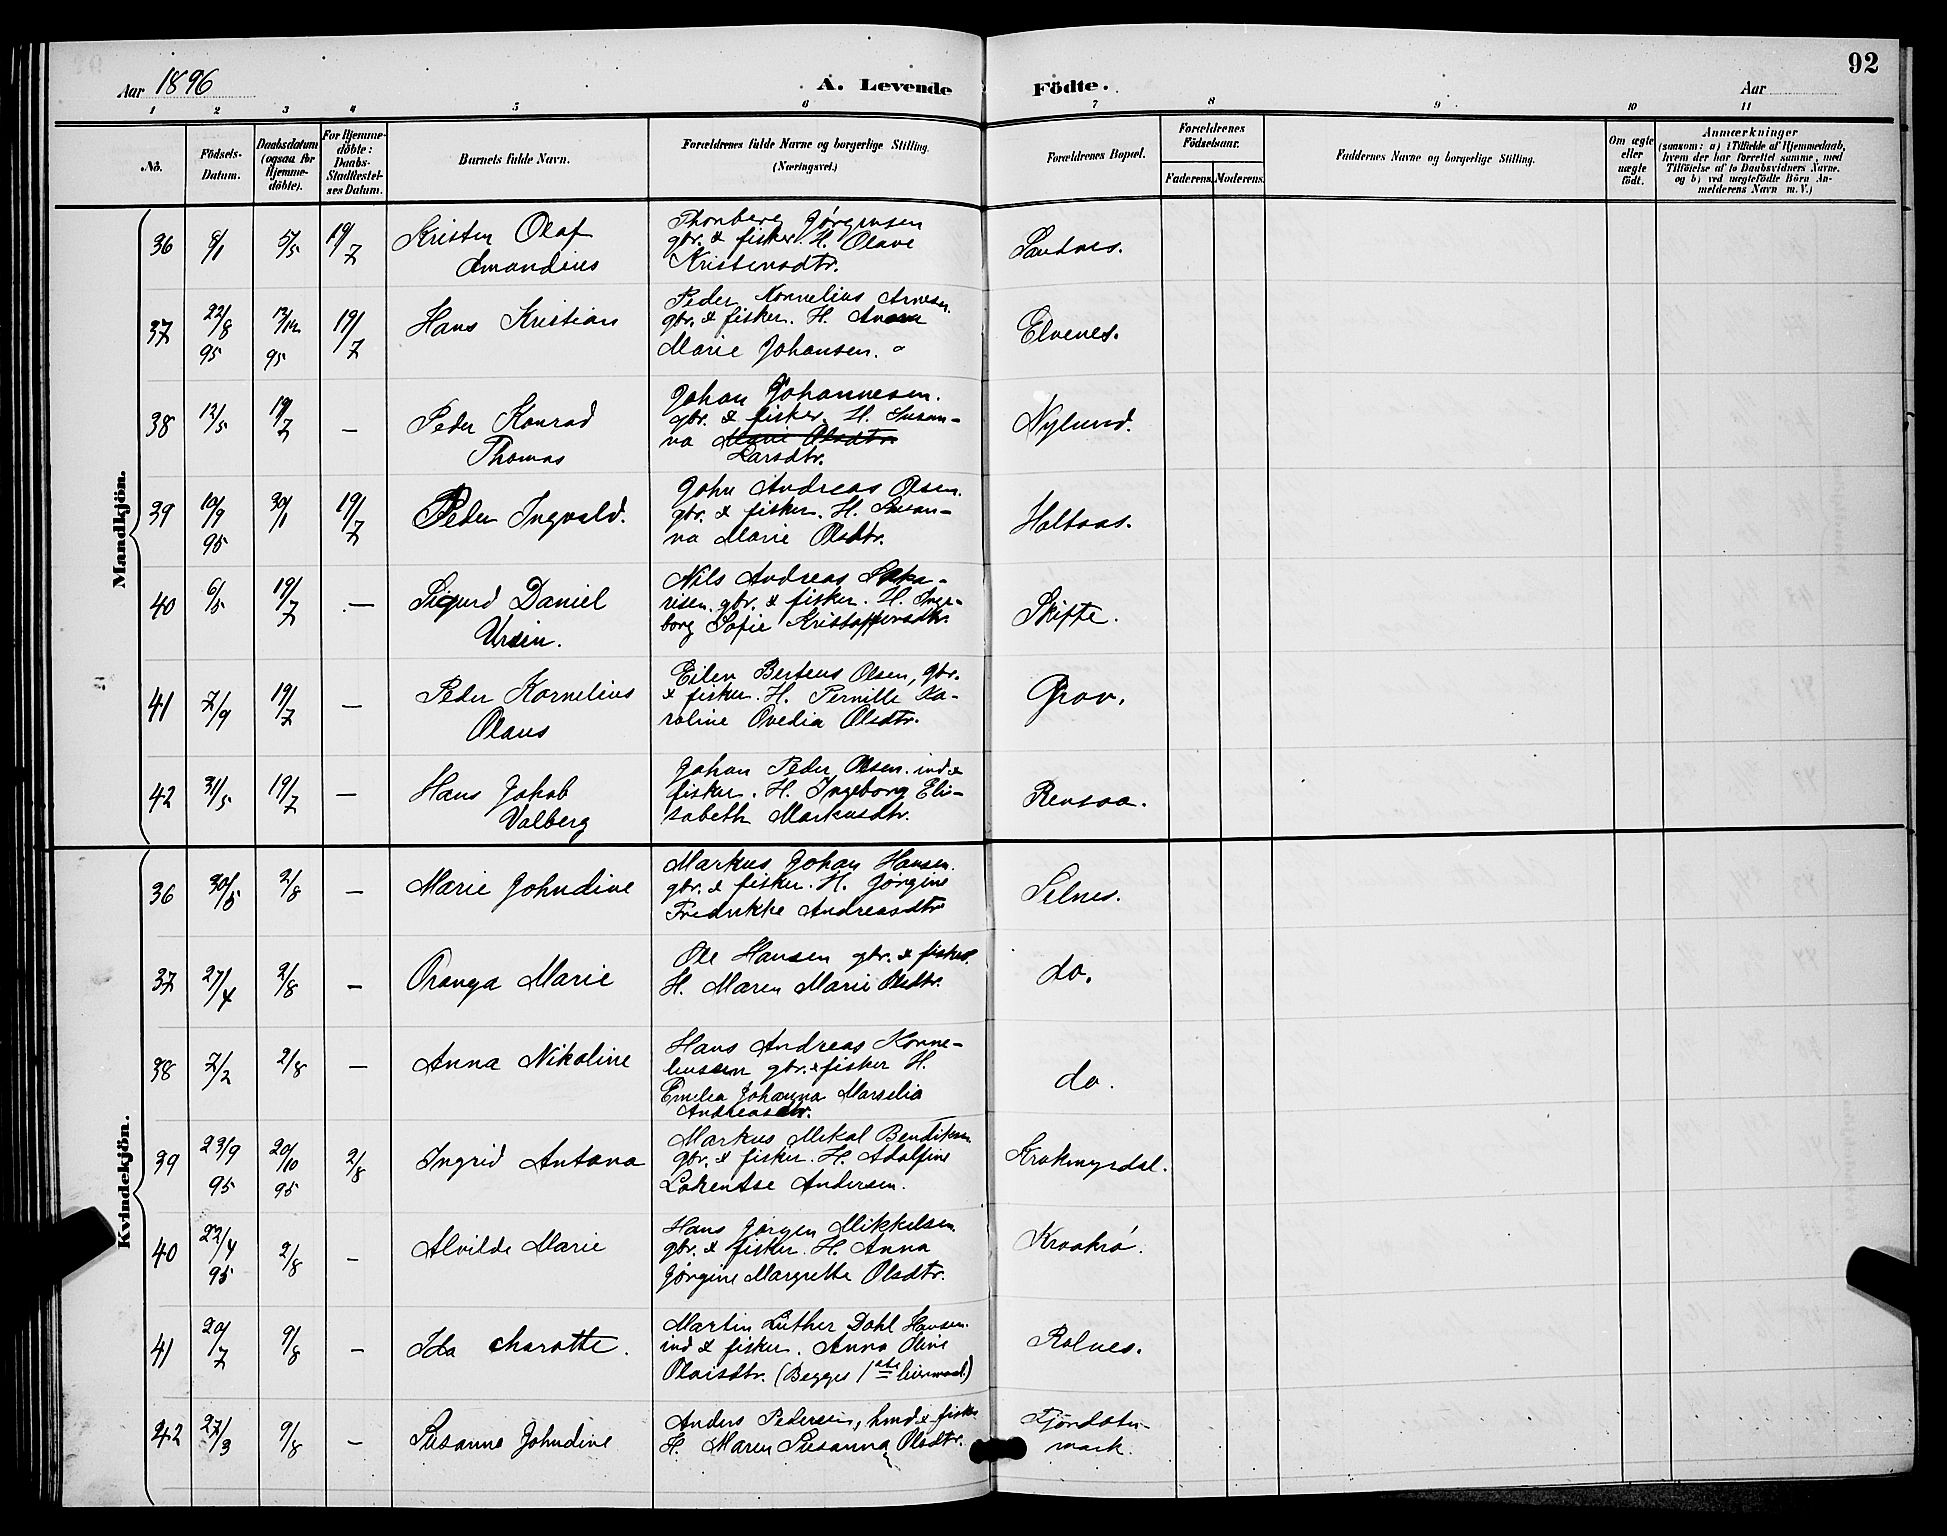 92
Aar 1896
A. Levende Födte.
Aar
1 2 3 4 5 6 7 8 9 10 11
No. Födsels-Datum. Daabsdatum (ogsaa for Hjemmedöbte). For Hjemmedöbte: Daabs-Stadfæstelses Datum. Barnets fulde Navn. Forældrenes fulde Navne og borgerlige Stilling. (Næringsvei.) Forældrenes Bopæl. Forældrenes Födselsaar. Faderens. Moderens. Faddernes Navne og borgerlige Stilling. Om ægte eller uægte födt. Anmærkninger (saasom: a) i Tilfælde af Hjemmedaab, hvem der har forrettet samme, med Tilföielse af to Daabsvidners Navne, og b) ved uægtefödte Börn Anmelderens Navn m. V.)
Mandkjön.
36 6/1 5/5 19/7 Kristen Olaf Amandius
Thonberg Jørgensen
gbr. & fisker. H. Olave
Kristensdtr.
Sandnes.
37 22/8 95 13/12 95 19/7 Hans Kristian
Peder Kornelius Arnesen.
gbr. & fisker. H. Anna
Marie Johansen.
Elvenes.
38 12/5 19/7 — Peder Konrad Thomas
Johan Johannesen.
gbr. & fisker. H. Susan-
na Marie Olsdtr
Larsdtr.
Nylund.
39 10/9 95 30/1 19/7 Peder Ingvald.
John Andreas Olsen.
gbr. & fisker. H. Susan-
na Marie Olsdtr.
Holtaas.
40 6/5 19/7 — Sigurd Daniel Ursin.
Nils Andreas Saka-
risen. gbr. & fisker. H. Inge-
borg Sofie Kristoffersdtr.
Skifte.
41 7/9 19/7 — Peder Kornelius Olaus
Eilev Berteus Olsen, gbr.
& fisker. H. Pernille Ka-
roline Ovedia Olsdtr.
Grov.
42 31/5 19/7 — Hans Jakob Valberg
Johan Peder Olsen. ind &
fisker. H. Ingeborg Eli-
sabeth Markusdtr.
Rensaa.
Kvindekjön.
36 30/5 2/8 — Marie Johndine
Markus Johan Hansen.
gbr. & fisker. H. Jørgine
Fredrikke Andreasdtr
Selnes.
37 27/4 2/8 — Oranga Marie
Ole Hansen gbr. & fisker.
H. Maren Marie Olsdtr.
do.
38 7/2 2/8 — Anna Nikoline
Hans Andreas Korne-
liussen gbr. & fisker H.
Emelea Johanna Marselia
Andreasdtr.
do.
39 23/9 95 20/10 95 2/8 Ingrid Antona
Markus Mikal Bendiksen
gbr. & fisker. H. Adolfine
Lorentse Andersen.
Krokmyrdal.
40 22/4 95 2/8 — Alvilde Marie
Hans Jørgen Mikkelsen.
gbr. & fisker. H. Anna
Jørgine Margrette Olsdtr.
Kraakrö.
41 20/7 9/8 — Ida Charotte.
Martin Luther Dahl Hansen.
ind & fisker. Anna Oline
Olaisdtr. (Begges 1ste leiermaal)
Rolnes.
42 27/3 9/8 — Susanne Johndine
Anders Pedersen, hmd & fisker
H. Maren Susanna Olsdtr.
mark.